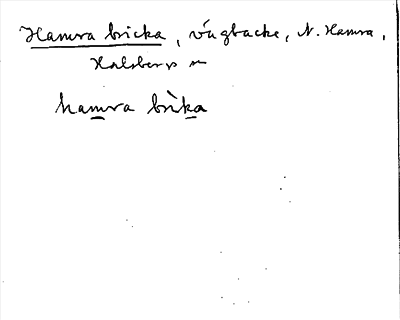 Hamra bricka, vägbacke, N. Hamra,
Halsbergs sn
hamra brìka